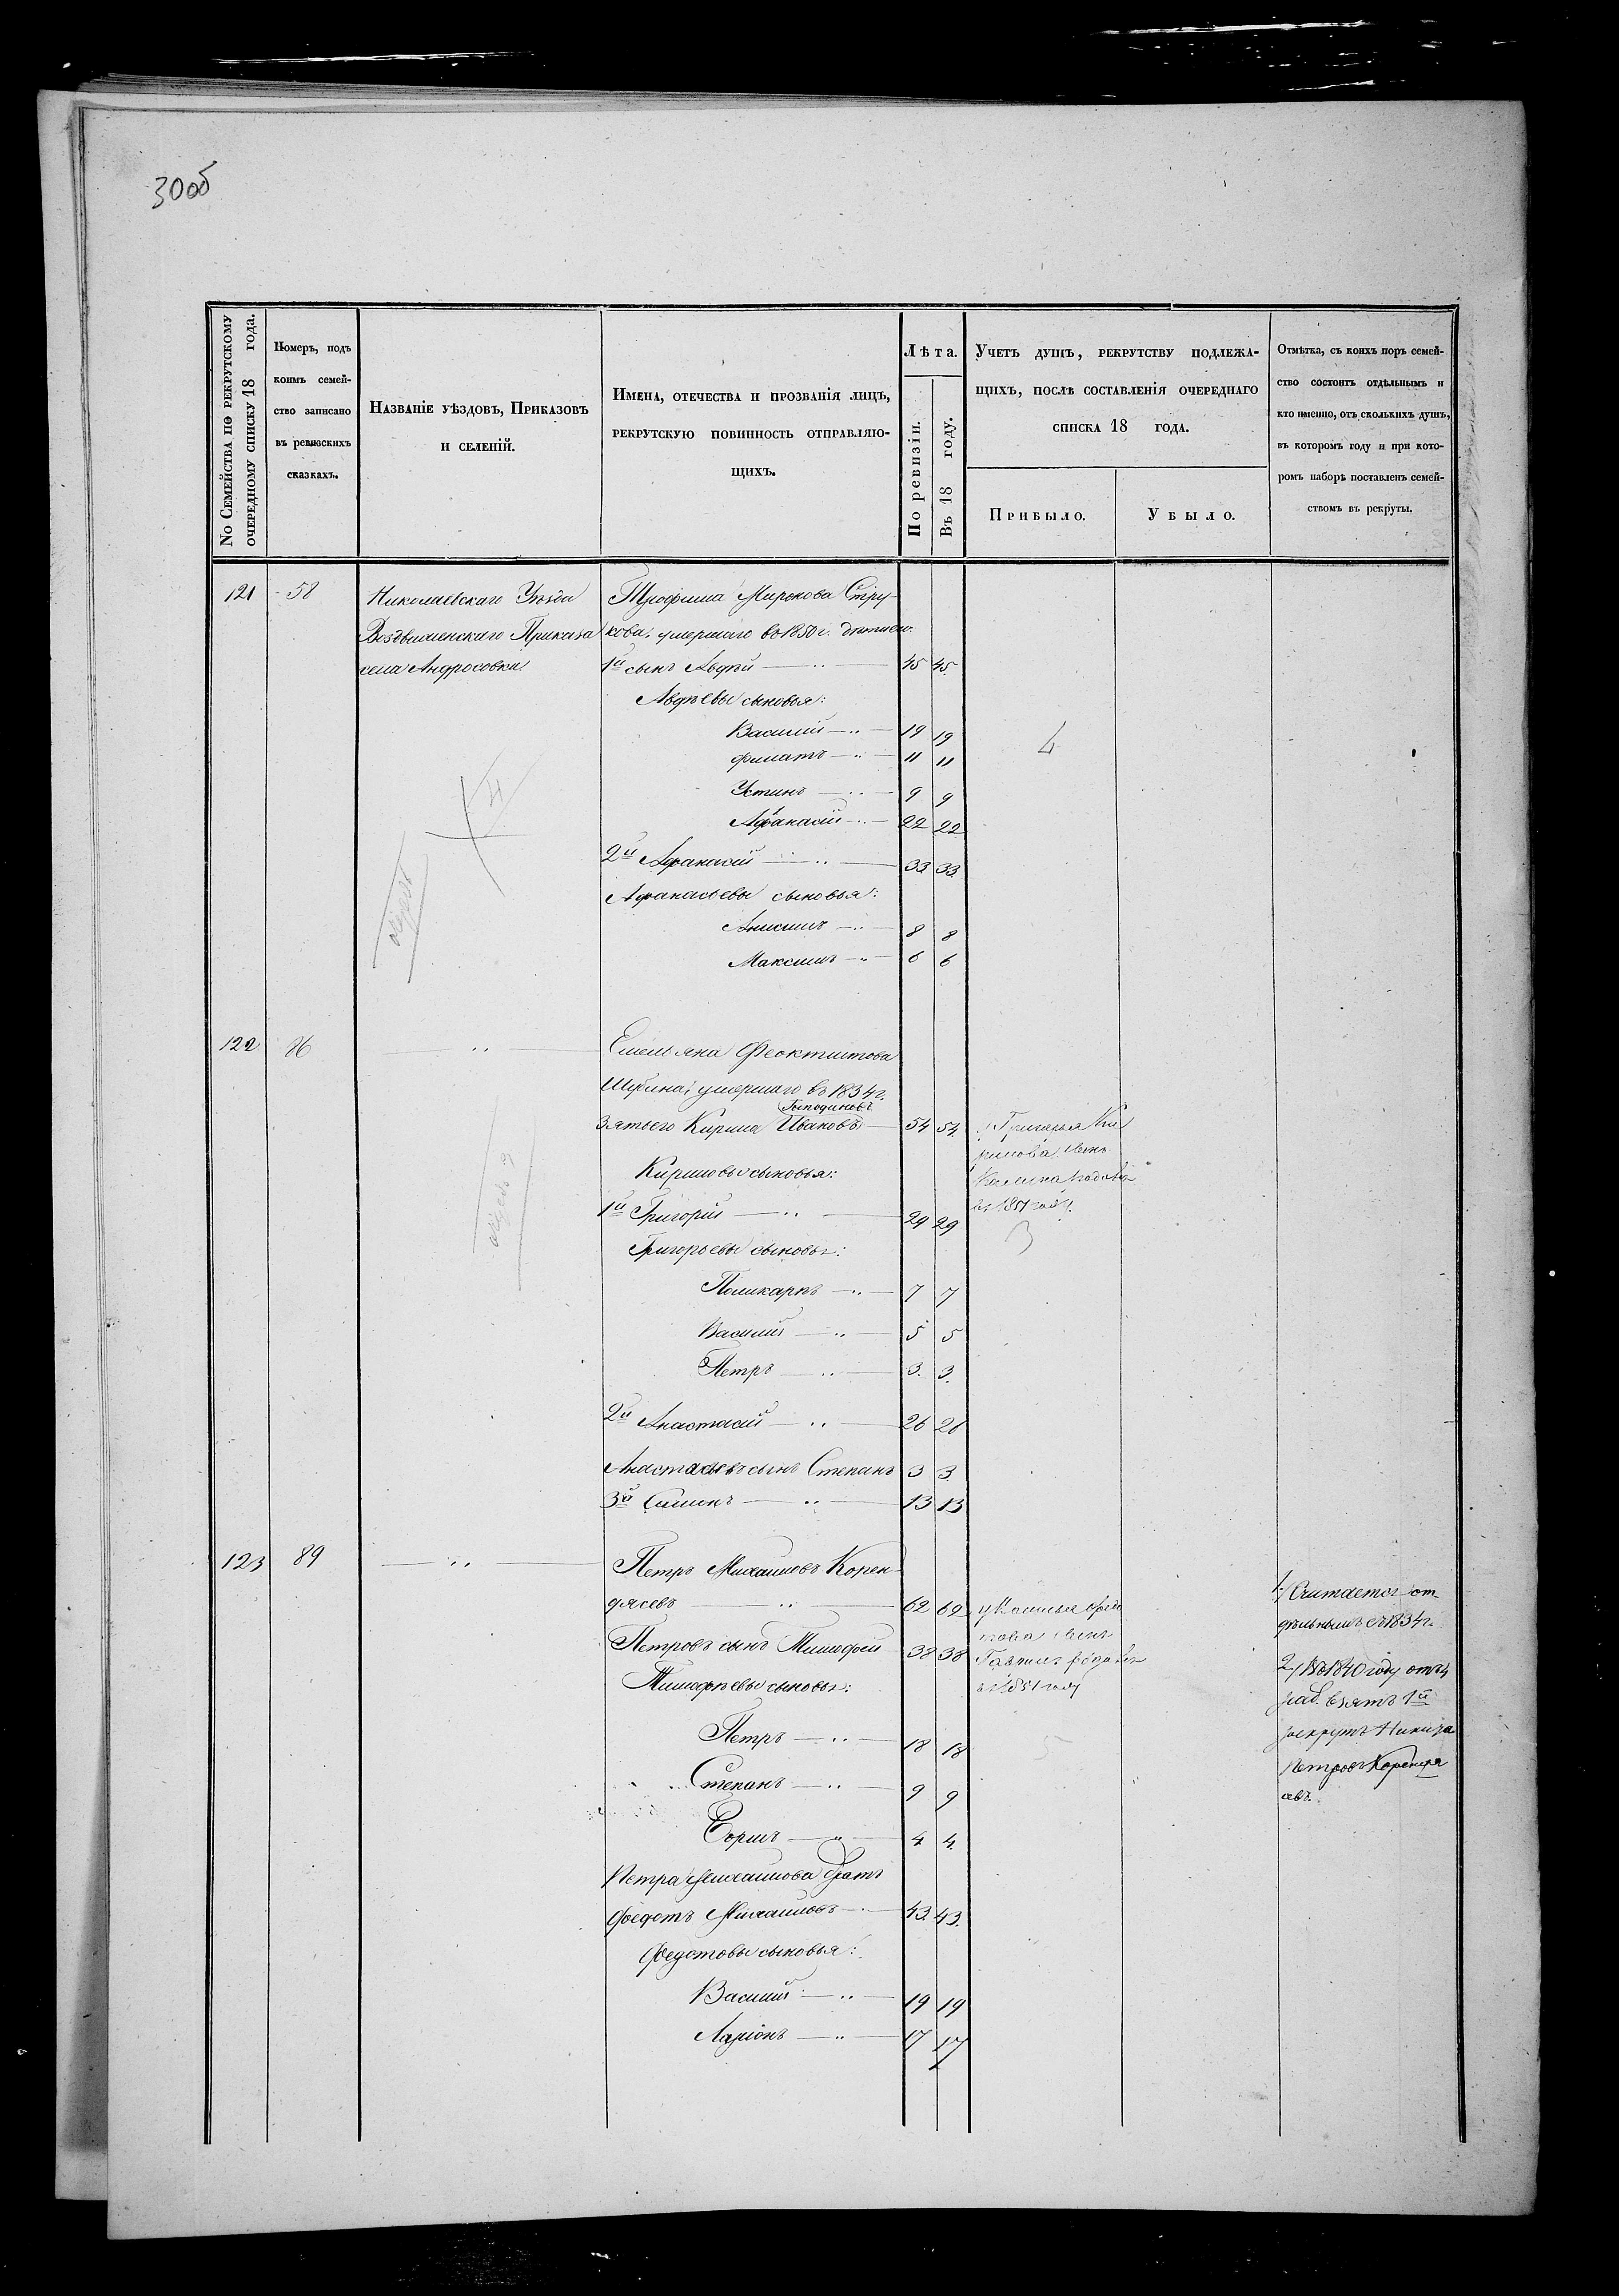 30об
No Семейства по рекрутскому
очередному списку 18 года.
Номеръ, подъ
коимъ семей-
ство записано
въ ревизскихъ
сказкахъ.
Названіе уѣздовъ, Приказовъ
и селеній.
Имена, отечества и прозванія лицъ,
рекрутскую повинность отправляю-
щихъ.
Лѣта.
По ревизіи.
Въ 18 году.
Учетъ душъ, рекрутству подлежа-
щихъ, послѣ составленія очереднаго
списка 18 года.
Прибыло.
Убыло.
Отмѣтка, съ коихъ поръ семей-
ство состоитъ отдѣльнымъ и
кто именно, отъ сколькихъ душъ,
въ которомъ году и при кото-
ромъ наборѣ поставленъ семей-
ствомъ въ рекруты.
121 58 Николаевскаго Уѣзда Трофима Миронова Стру-
Воздвиженскаго Приказа кова, умершаго въ 1850 г. дѣтми
села Андросовки 1й сынъ Авдѣй 45 45
Авдѣевы сыновья:
Василій 19 19
Филатъ 11 11
Устинъ 9 9
Афанасій 22 22
2й Афанасій 33 33
Афанасьевы сыновья:
Анисимъ 8 8
Максимъ 6 6
4
122 86 Емельяна Феоктистова
Шубина, умершаго въ 1834 г.
Господиновъ
зять его Кирила Ивановъ 54 54
Кириловы сыновья:
1й Григорій 29 29
Григорьевы сыновья:
Поликарпъ 7 7
Василій 5 5
Петръ 3 3
2й Анастасій 26 26
Анастасьевъ сынъ Степанъ 3 3
3й Симонъ 13 13
у Григорья Ки
рилова сынъ
родился
въ 1851 году
3
123 89 Петръ Михайловъ Корен-
дясевъ 62 62
Петровъ сынъ Тимофей 38 38
Тимофѣевы сыновья:
Петръ 18 18
Степанъ 9 9
Борисъ 4 4
Петра Михайлова братъ
Федотъ Михайловъ 43 43
Федотовы сыновья:
Василій 19 19
Ларіонъ 17 17
у Василья Федо
това сынъ
родился
въ 1851 году
5
1/ Считается от
дѣльнымъ съ 1834 г.
2/ Въ 1840 году отъ 4
раб. взятъ 1й
рекрутъ Никита
Петровъ Корендя
севъ.